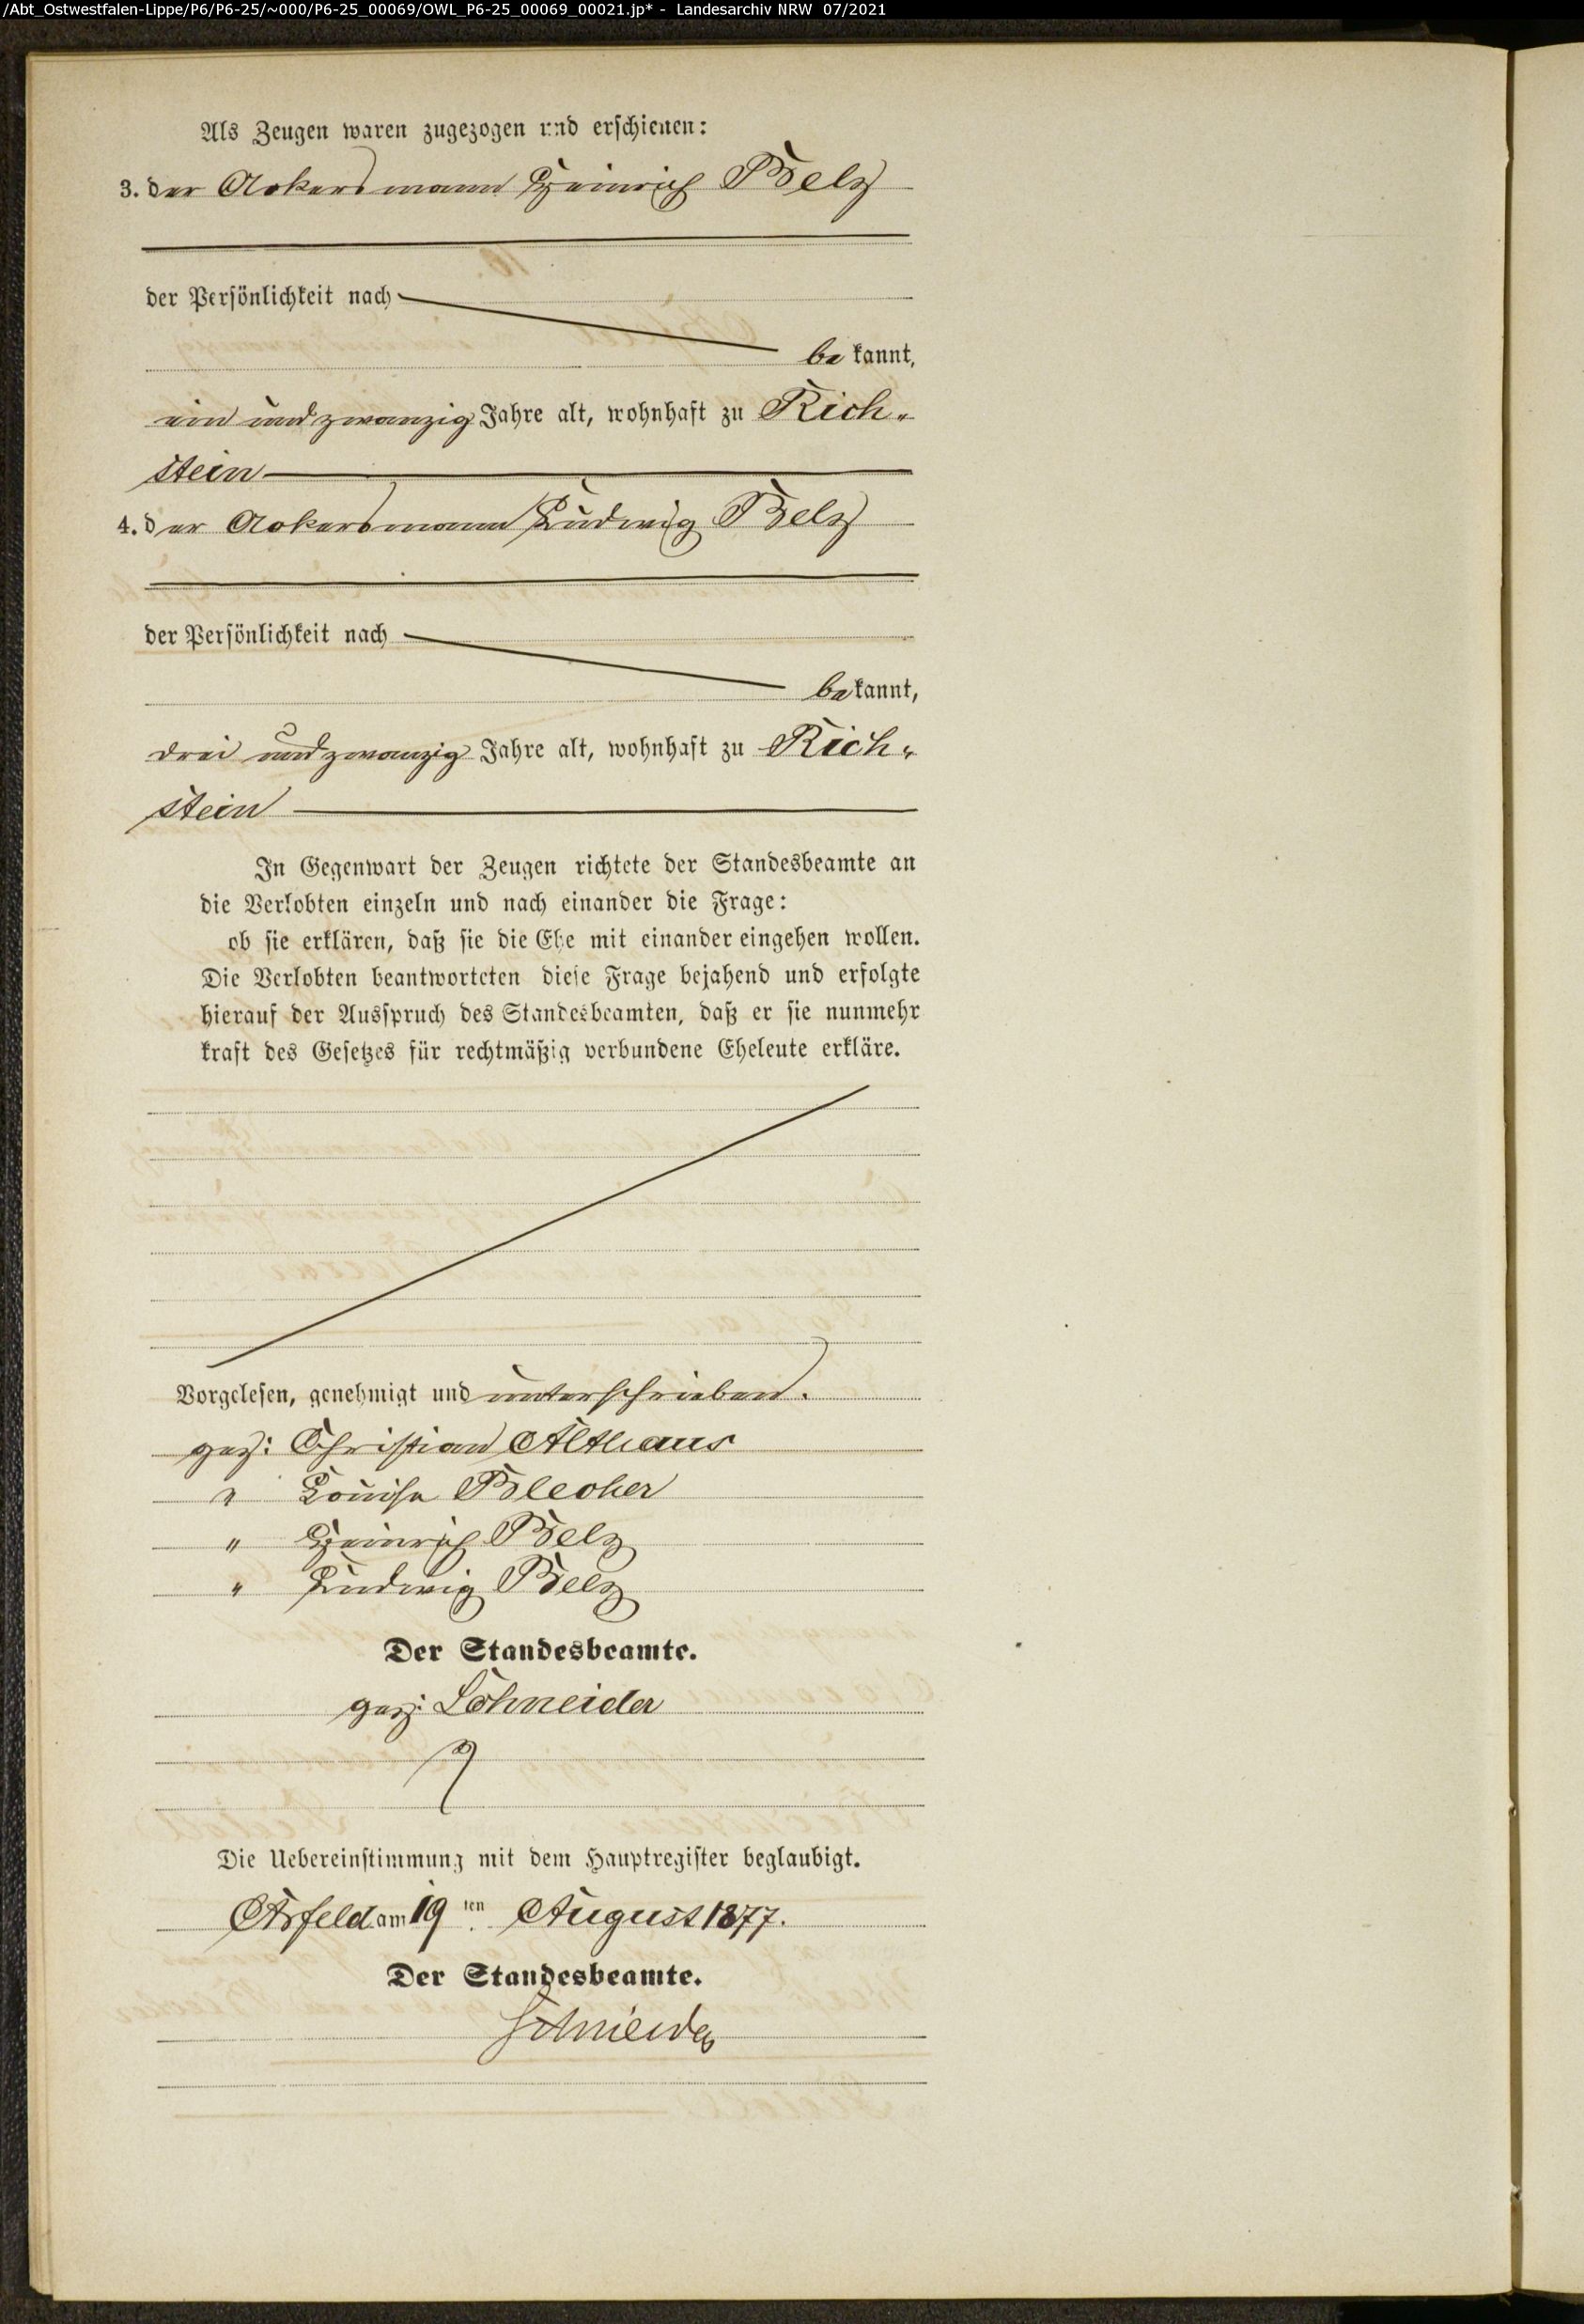 /Abt_Ostwestfalen-Lippe/P6/P6-25/~000/P6-25_00069/OWL_P6-25_00069_00021.jp* - Landesarchiv NRW 07/2021
Als Zeugen waren zugezogen und erschienen:
3. der Ackersmann Heinrich Belz
der Persönlichkeit nach
be kannt,
ein und zwanzig Jahre alt, wohnhaft zu Rich-
stein
4. der Ackersmann Ludwig Belz
der Persönlichkeit nach
be kannt,
drei und zwanzig Jahre alt, wohnhaft zu Rich-
stein
In Gegenwart der Zeugen richtete der Standesbeamte an
die Verlobten einzeln und nach einander die Frage:
ob sie erklären, daß sie die Ehe mit einander eingehen wollen.
Die Verlobten beantworteten diese Frage bejahend und erfolgte
hierauf der Ausspruch des Standesbeamten, daß er sie nunmehr
kraft des Gesetzes für rechtmäßig verbundene Eheleute erkläre.
Vorgelesen, genehmigt und unterschrieben.
gez: Christian Althaus
" Louise Blecher
" Heinrich Belz
" Ludwig Belz
Der Standesbeamte.
gez: Schneider
Die Uebereinstimmung mit dem Hauptregister beglaubigt.
Arfeld am 19 ten August 1877.
Der Standesbeamte.
Schneider